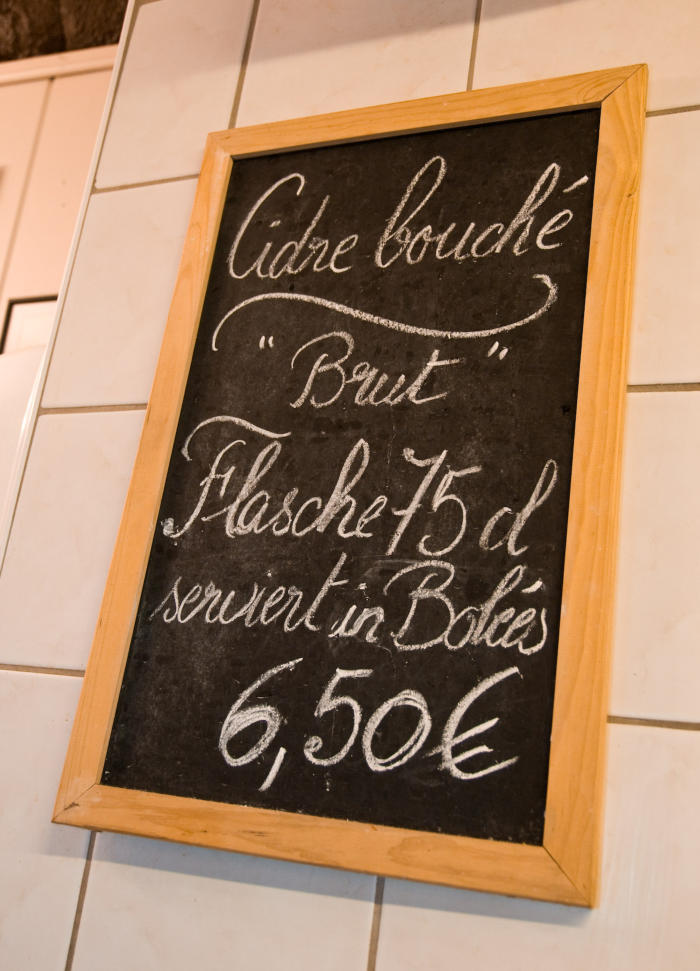 Cidre bouché
"Brut"
Flasche 75 cl
serviert in Bolées
6,50€